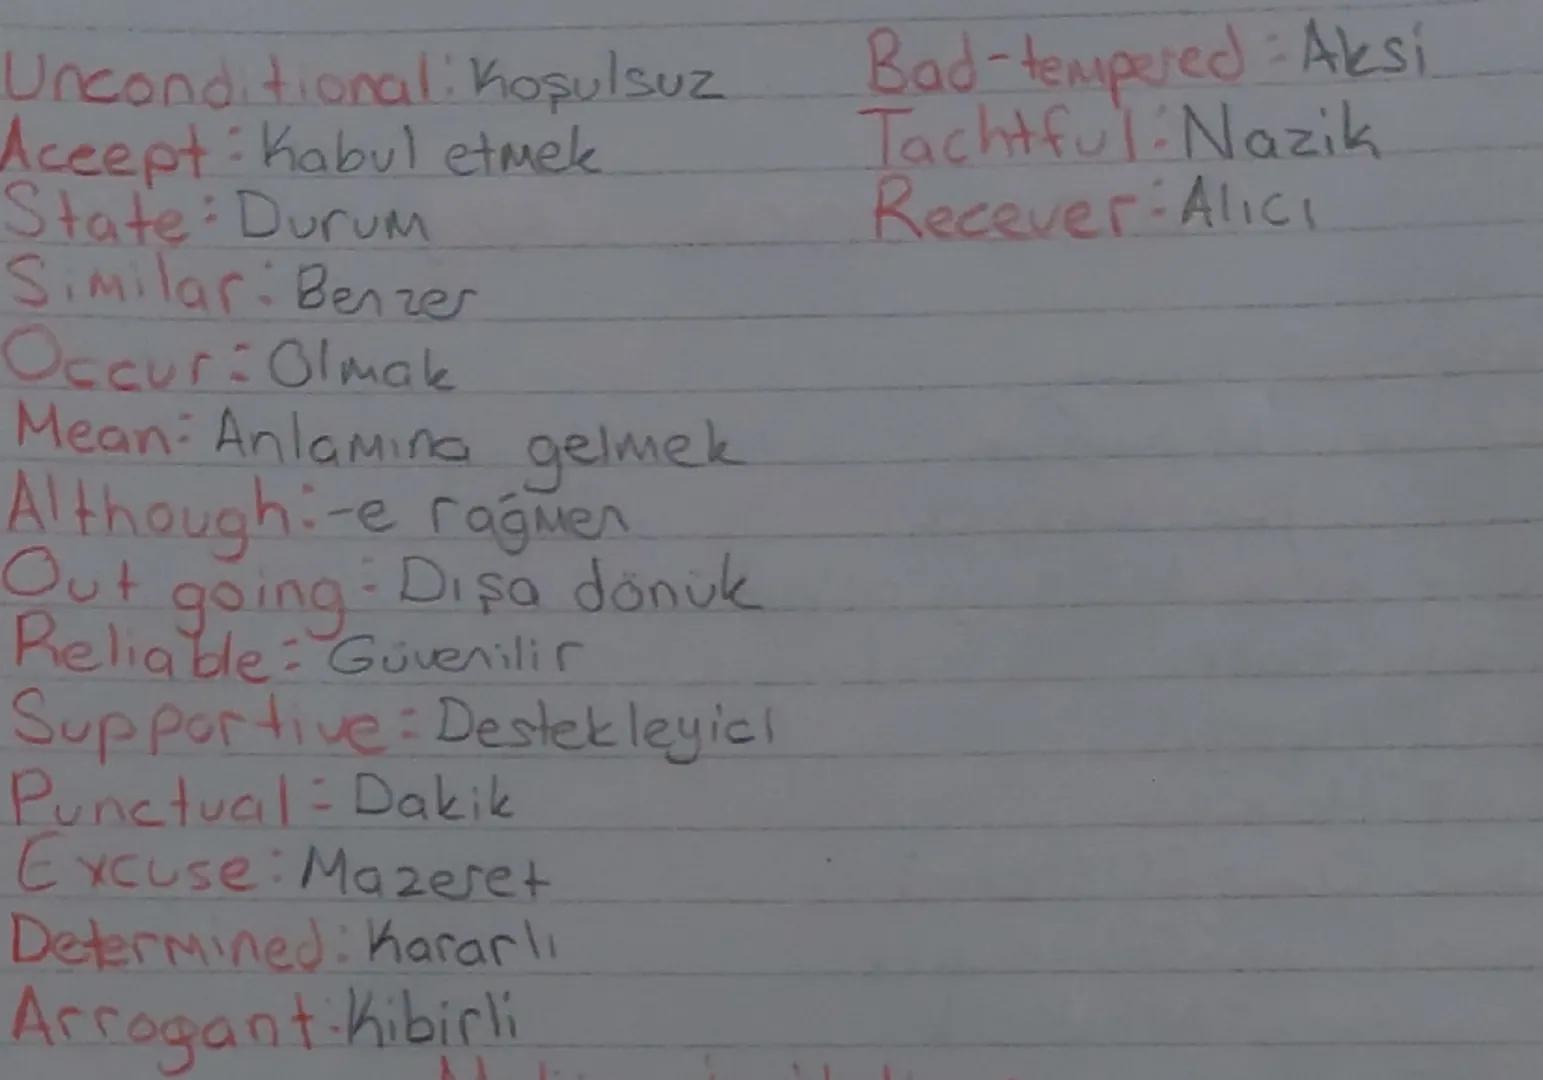 Unconditional: Koşulsuz
Accept: Kabul etmek
State: Durum
Similar: Benzer
Occur: Olmak
Mean: Anlamına gelmek
Although: -e rağmen
Out going: Dışa dönük
Reliable: Güvenilir
Supportive: Destekleyici
Punctual: Dakik
Excuse: Mazeret
Determined: Kararlı
Arrogant: Kibirli
Bad-tempered: Aksi
Tachtful: Nazik
Recever: Alıcı